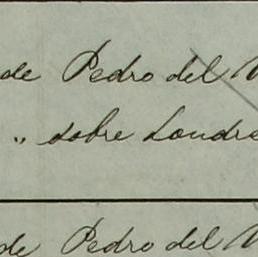 de Pedro del
" sobre Londre
de Pedro del